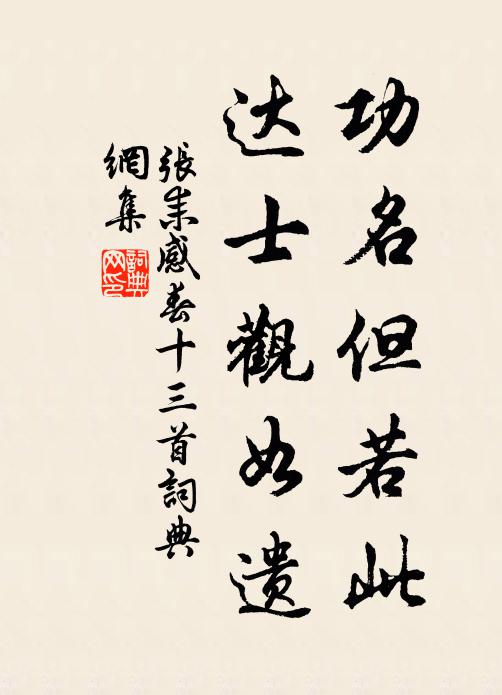 功名但若此
达士觀如遗
張耒感春十三首詞典
網集
詞典網印